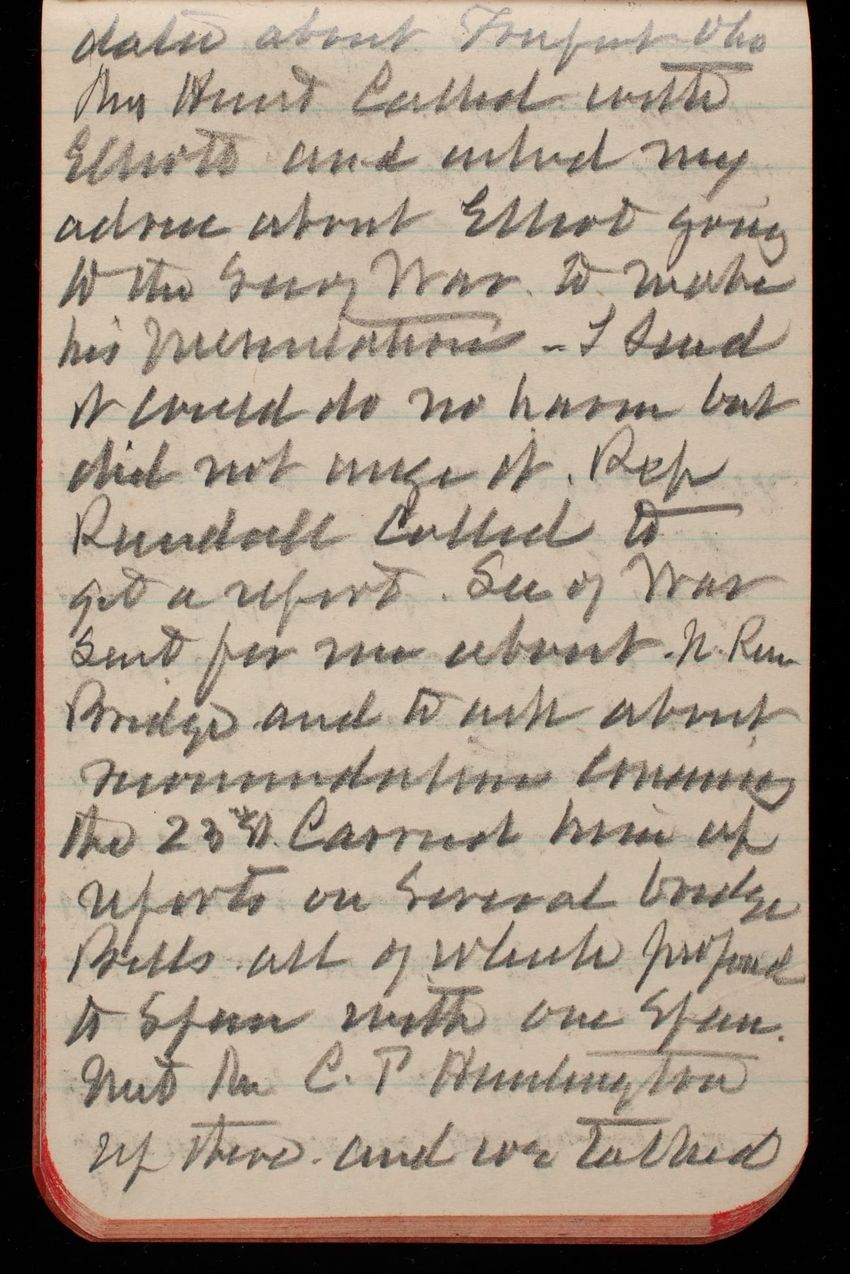 data about Freeport Ohio
Mrs Hunt Called with
Elliott and asked my
advice about Elliot going
to the Secy War to make
his Presentation - I said
it could do no harm but
did not urge it. Rep
Rundall Called to
get a report. Sec of War
sent for me about N. River
Bridge and to ask about
recommendations concerning
the 23rd. Carried him up
reports on Several bridge
Bills all of which proposed
to Span with one Span.
Met C. P Huntington
up there and we talked